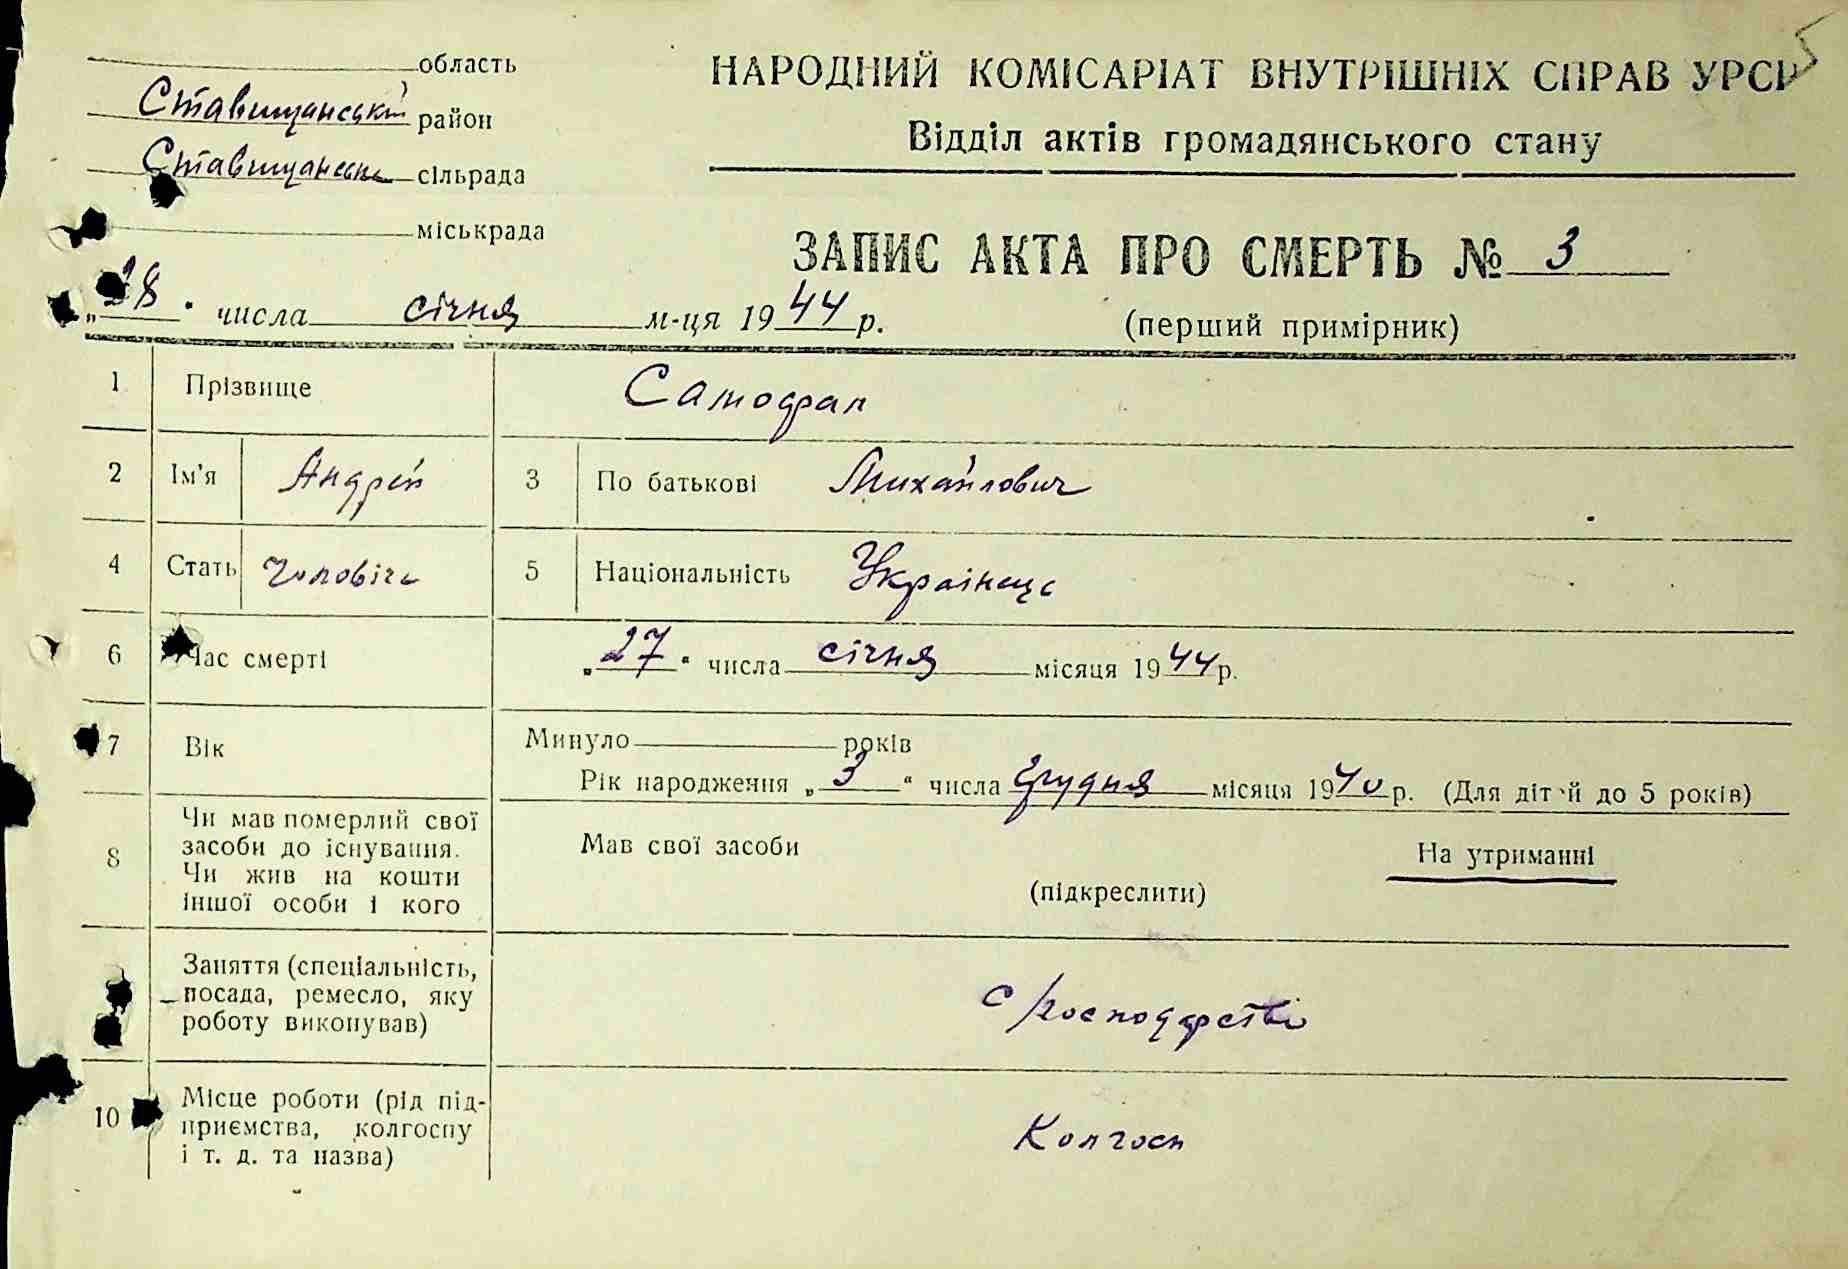 область
Ставищанський район
Ставищанська сільрада
міськрада
НАРОДНИЙ КОМІСАРІАТ ВНУТРІШНІХ СПРАВ УРСР
Відділ актів громадянського стану
ЗАПИС АКТА ПРО СМЕРТЬ № 3
„28" числа січня м-ця 1944 р.
(перший примірник)
1 Прізвище
2 Ім'я Андрей 3 По батькові Михайлович
4 Стать Чоловіча 5 Національність Українець
6 Час смерті „27" числа січня місяця 1944 р.
7 Вік Минуло років
Рік народження „3" числа Грудня місяця 1940 р. (Для дітей до 5 років)
8 Чи мав померлий свої
засоби до існування.
Чи жив на кошти
іншої особи і кого
Мав свої засоби На утриманні
(підкреслити)
Заняття (спеціальність,
посада, ремесло, яку
роботу виконував)
с/господарство
10 Місце роботи (рід під-
приємства, колгоспу
і т. д. та назва)
Колгосп